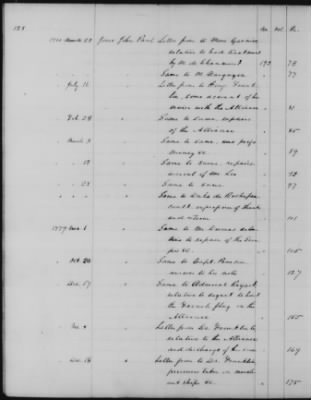 128
No. Vol. Pa.
1780 March 29 Jones John Paul Letter from to Mons Garnier
relative to bad treatment
by M. de Chaumont 193 " 75
" " " Same to M. " 77
" July 16 " Letter from to Benj. Frank-
lin some account of his
with the Alliance " 81
" Feb 28 " Same to same, repairs
of the Alliance " 85
" March 3 " Same to same, and prize
money &c. " 89
" " 13 " Same to same repairs
account of Mr Lee " 93
" " 23 " Same to same " 97
" " " Same to Duke de Rochefou-
cault, expression of thanks
and esteem " 101
1779 " 1 " Same to M. Dumas rela-
tive to repairs of the Sera-
pis &c. " 115
" Oct. 20 " Same to Capt. Pearson
answer to his note " 127
" Dec. 17 " Same to Admiral Reynst,
relative to request to hoist
the French flag in the
Alliance " 165
" " 4 " Letter from to Dr. Franklin
relative to the Alliance
and discharge of the crew " 169
" Dec. 16 " Letter from to Dr. Franklin,
prisoners taken in merch-
ant ships &c. " 175